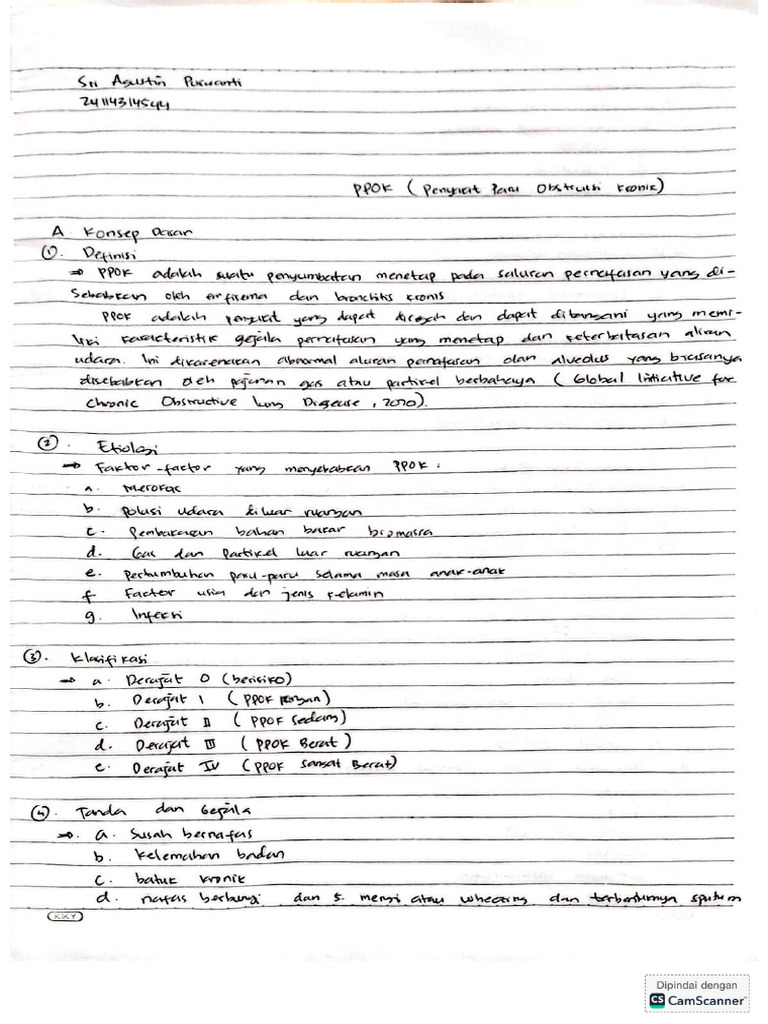 Sri Agustin Purwanti
24114314544
PPOK ( Penyakit Paru Obstruksi kronik)
A. Konsep Dasar
1. Definisi
⇒ PPOK adalah suatu penyumbatan menetap pada saluran pernafasan yang di-
Sebabkan oleh emfisema dan bronchitis kronis
PPOK adalah penyakit yang dapat dicegah dan dapat ditangani yang memi-
liki karakteristik gejala pernafasan yang menetap dan keterbatasan aliran
udara. Ini dikarenakan abnormal aluran pernafasan dan alveolus yang biasanya
disebabkan oleh pajanan gas atau partikel berbahaya ( Global Initiative for
Chronic Obstructive Lung Disease, 2020).
2. Etiologi
⇒ Faktor-factor yang menyebabkan PPOK :
a. Merokok
b. Polusi udara diluar ruangan
c. Pembakaran bahan bakar biomassa
d. Gas dan Partikel luar ruangan
e. Pertumbuhan paru-paru selama masa anak-anak
f. Factor usia dan jenis kelamin
g. Infeksi
3. Klasifikasi
⇒ a. Derajat 0 (berisiko)
b. Derajat I ( PPOK Ringan)
c. Derajat II ( PPOK Sedang)
d. Derajat III ( PPOK Berat )
e. Derajat IV (PPOK Sangat Berat)
4. Tanda dan Gejala
⇒ a. Susah bernafas
b. Kelemahan badan
c. batuk kronik
d. nafas berbunyi dan 5. mengi atau wheezing dan terbentuknya sputum
XXY
Dipindai dengan
CS CamScanner